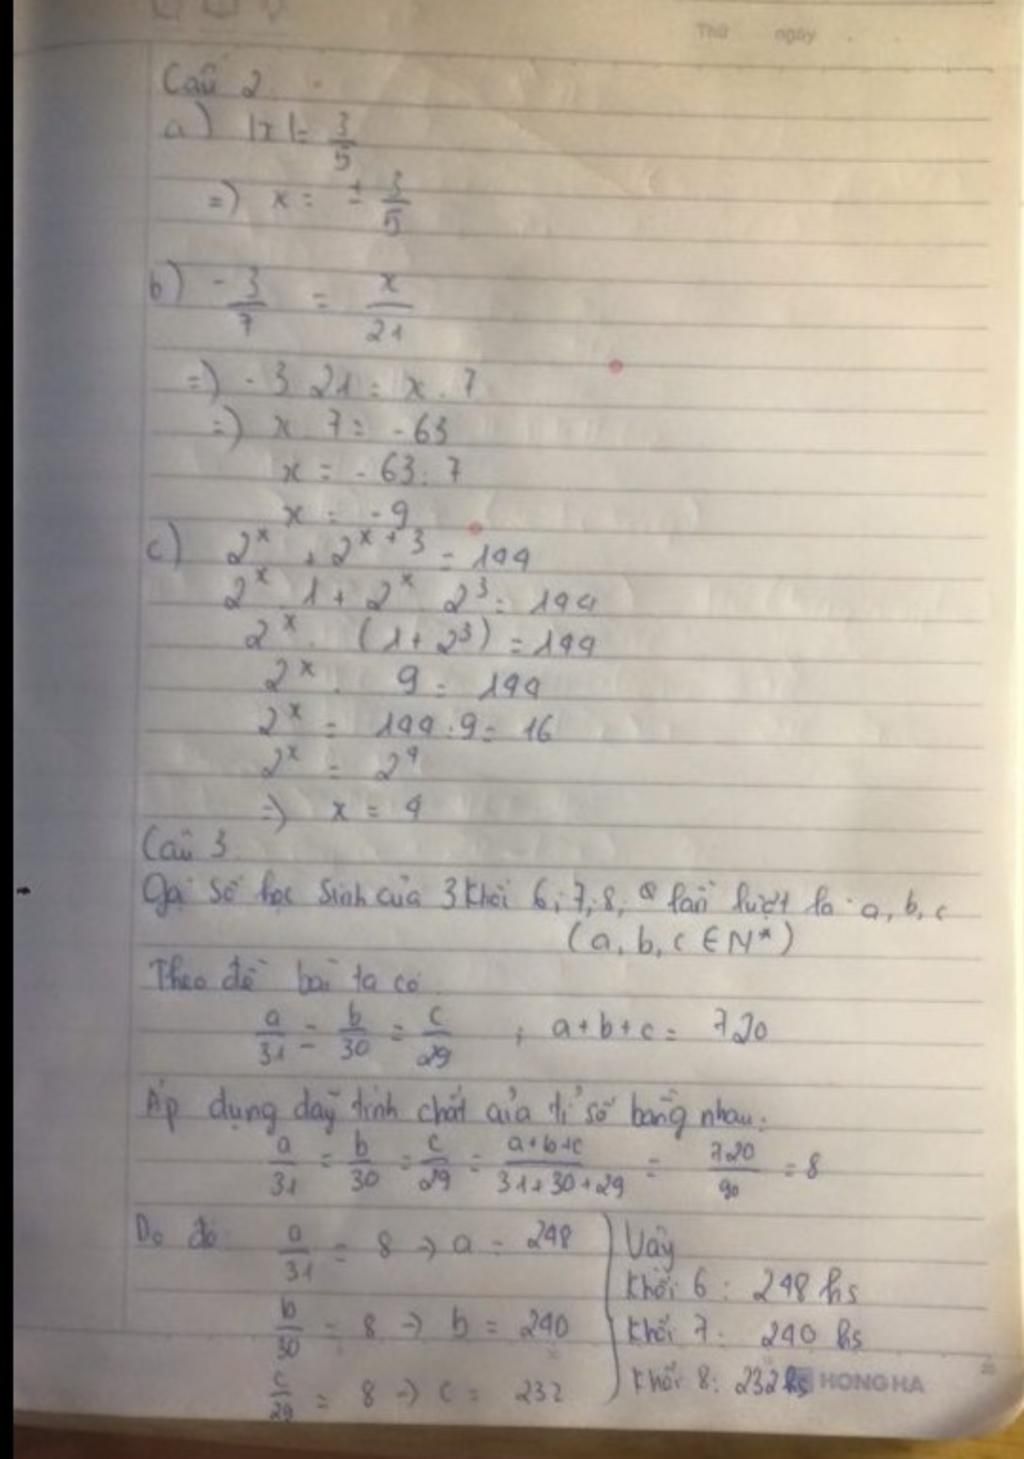 Thứ ngày
Câu 2
a) |x| = 3/5
=) x = ± 3/5
b) -3/7 = x/21
=) -3 . 21 = x . 7
=) x . 7 = -63
x = -63 : 7
x = -9
c) 2^x + 2^(x+3) = 144
2^x . 1 + 2^x . 2^3 = 144
2^x . (1 + 2^3) = 144
2^x . 9 = 144
2^x = 144 : 9 = 16
2^x = 2^4
=) x = 4
Câu 3
Gọi số học sinh của 3 khối 6, 7, 8, lần lượt là : a, b, c
(a, b, c ∈ N*)
Theo đề bài ta có
a/31 = b/30 = c/29 ; a + b + c = 720
Áp dụng dãy tính chất của tỉ số bằng nhau:
a/31 = b/30 = c/29 = (a+b+c)/(31+30+29) = 720/90 = 8
Do đó a/31 = 8 → a = 248
b/30 = 8 → b = 240
c/29 = 8 → c = 232
Vậy
Khối 6 : 248 hs
Khối 7 : 240 hs
Khối 8 : 232 hs
HONG HA